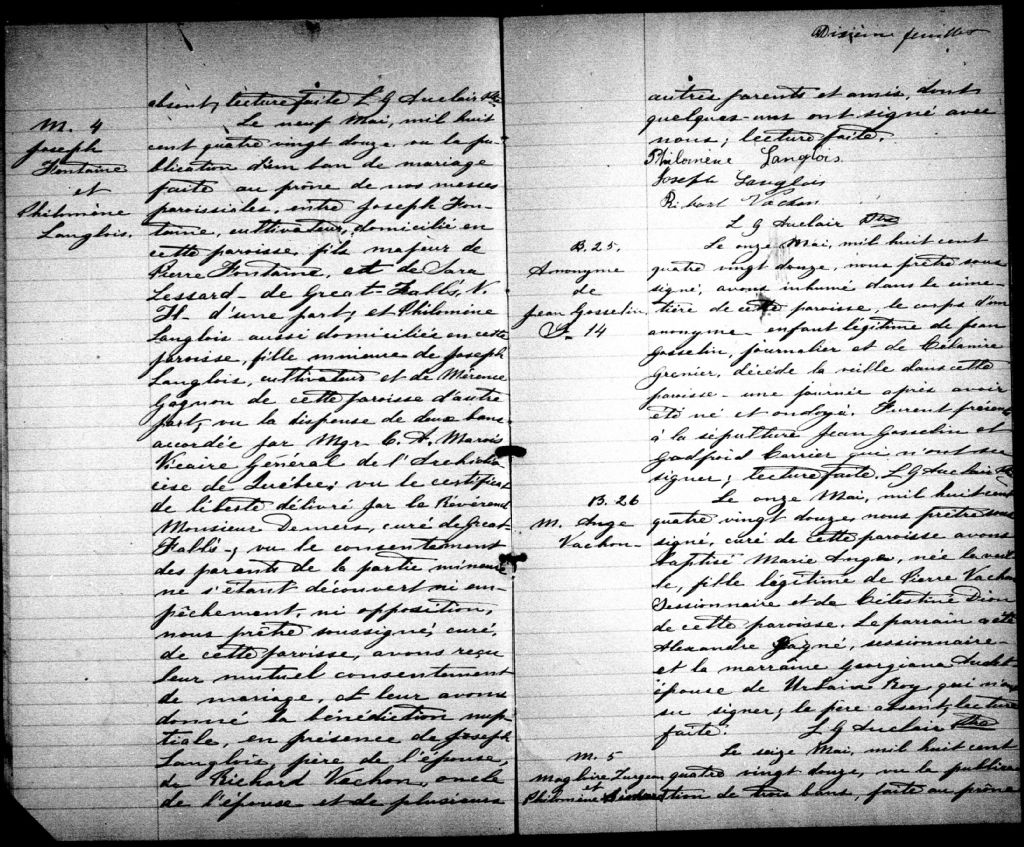 absent; lecture faite L G Auclair Ptre
M. 4
Joseph
Fontaine
et
Philomène
Langlois.
Le neuf Mai, mil huit
cent quatre vingt douze, vu la pu-
blication d'un ban de mariage
faite au prône de nos messes
paroissiales, entre Joseph Fon-
taine, cultivateur, domicilié en
cette paroisse, fils majeur de
Pierre Fontaine, et de Sara
Lessard - de Great-Falls, N.
H. d'une part; et Philomène
Langlois aussi domiciliée en cette
paroisse, fille mineure de Joseph
Langlois, cultivateur et de Mérence
Gagnon de cette paroisse d'autre
part, vu la dispense de deux bans
accordée par Mgr. C. A. Marois
Vicaire Général de l'Archidio-
cèse de Québec; vu le certificat
de liberté délivré par le Révérend
Monsieur Demers, curé de Great-
Falls-; vu le consentement
des parents de la partie mineure
ne s'étant découvert ni em-
pêchement, ni opposition,
nous prêtre soussigné, curé,
de cette paroisse, avons reçu
leur mutuel consentement
de mariage, et leur avons
donné la bénédiction nup-
tiale, en présence de Joseph
Langlois, père de l'épouse,
de Richard Vachon, oncle
de l'épouse et de plusieurs
Dixième feuillet
autres parents et amis, dont
quelques-uns ont signé avec
nous; lecture faite.
Philomène Langlois
Joseph Langlois
Richard Vachon
L G Auclair Ptre
B. 25.
Anonyme
de
Jean Gosselin
S. 14
Le onze Mai, mil huit cent
quatre vingt douze, nous prêtre sous
signé, avons inhumé dans le cime-
tière de cette paroisse, le corps d'un
anonyme enfant légitime de Jean
Gosselin, journalier et de Célanire
Grenier, décédé la veille dans cette
paroisse - une journée après avoir
été né et ondoyé. Furent présents
à la sépulture Jean Gosselin et
Godfroid Carrier qui n'ont su
signer; lecture faite. L G Auclair Ptre
B. 26
M. Ange
Vachon-
Le onze Mai, mil huit cent
quatre vingt douze, nous prêtre sous
signé, curé de cette paroisse avons
baptisé Marie Ange, née la veil
le, fille légitime de Pierre Vachon
Sessionnaire et de Célestine Dion
de cette paroisse. Le parrain a été
Alexandre Gagné, sessionnaire
et la marraine Georgiana Audet
épouse de Urbain Roy qui n'ont
su signer; le père absent; lecture
faite. L G Auclair Ptre
M. 5
Magloire Turgeon
et
Philomène
Le seize Mai, mil huit cent
quatre vingt douze, vu la publica
tion de trois bans, faite au prône